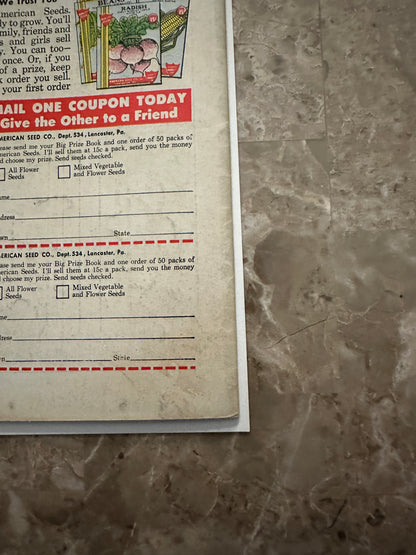 We Trust You
merican Seeds.
ly to grow. You'll
amily, friends and
s and girls sell
y. You can too—
once. Or, if you
of a prize, keep
k order you sell.
your first order
BEANS
RADISH
15¢
15¢
MAIL ONE COUPON TODAY
Give the Other to a Friend
MERICAN SEED CO., Dept. 534, Lancaster, Pa.
ease send me your Big Prize Book and one order of 50 packs of
merican Seeds. I'll sell them at 15c a pack, send you the money
d choose my prize. Send seeds checked.
All Flower Seeds
Mixed Vegetable and Flower Seeds
ame
ddress
own State
MERICAN SEED CO., Dept. 534, Lancaster, Pa.
ease send me your Big Prize Book and one order of 50 packs of
merican Seeds. I'll sell them at 15c a pack, send you the money
d choose my prize. Send seeds checked.
All Flower Seeds
Mixed Vegetable and Flower Seeds
ame
ddress
own State